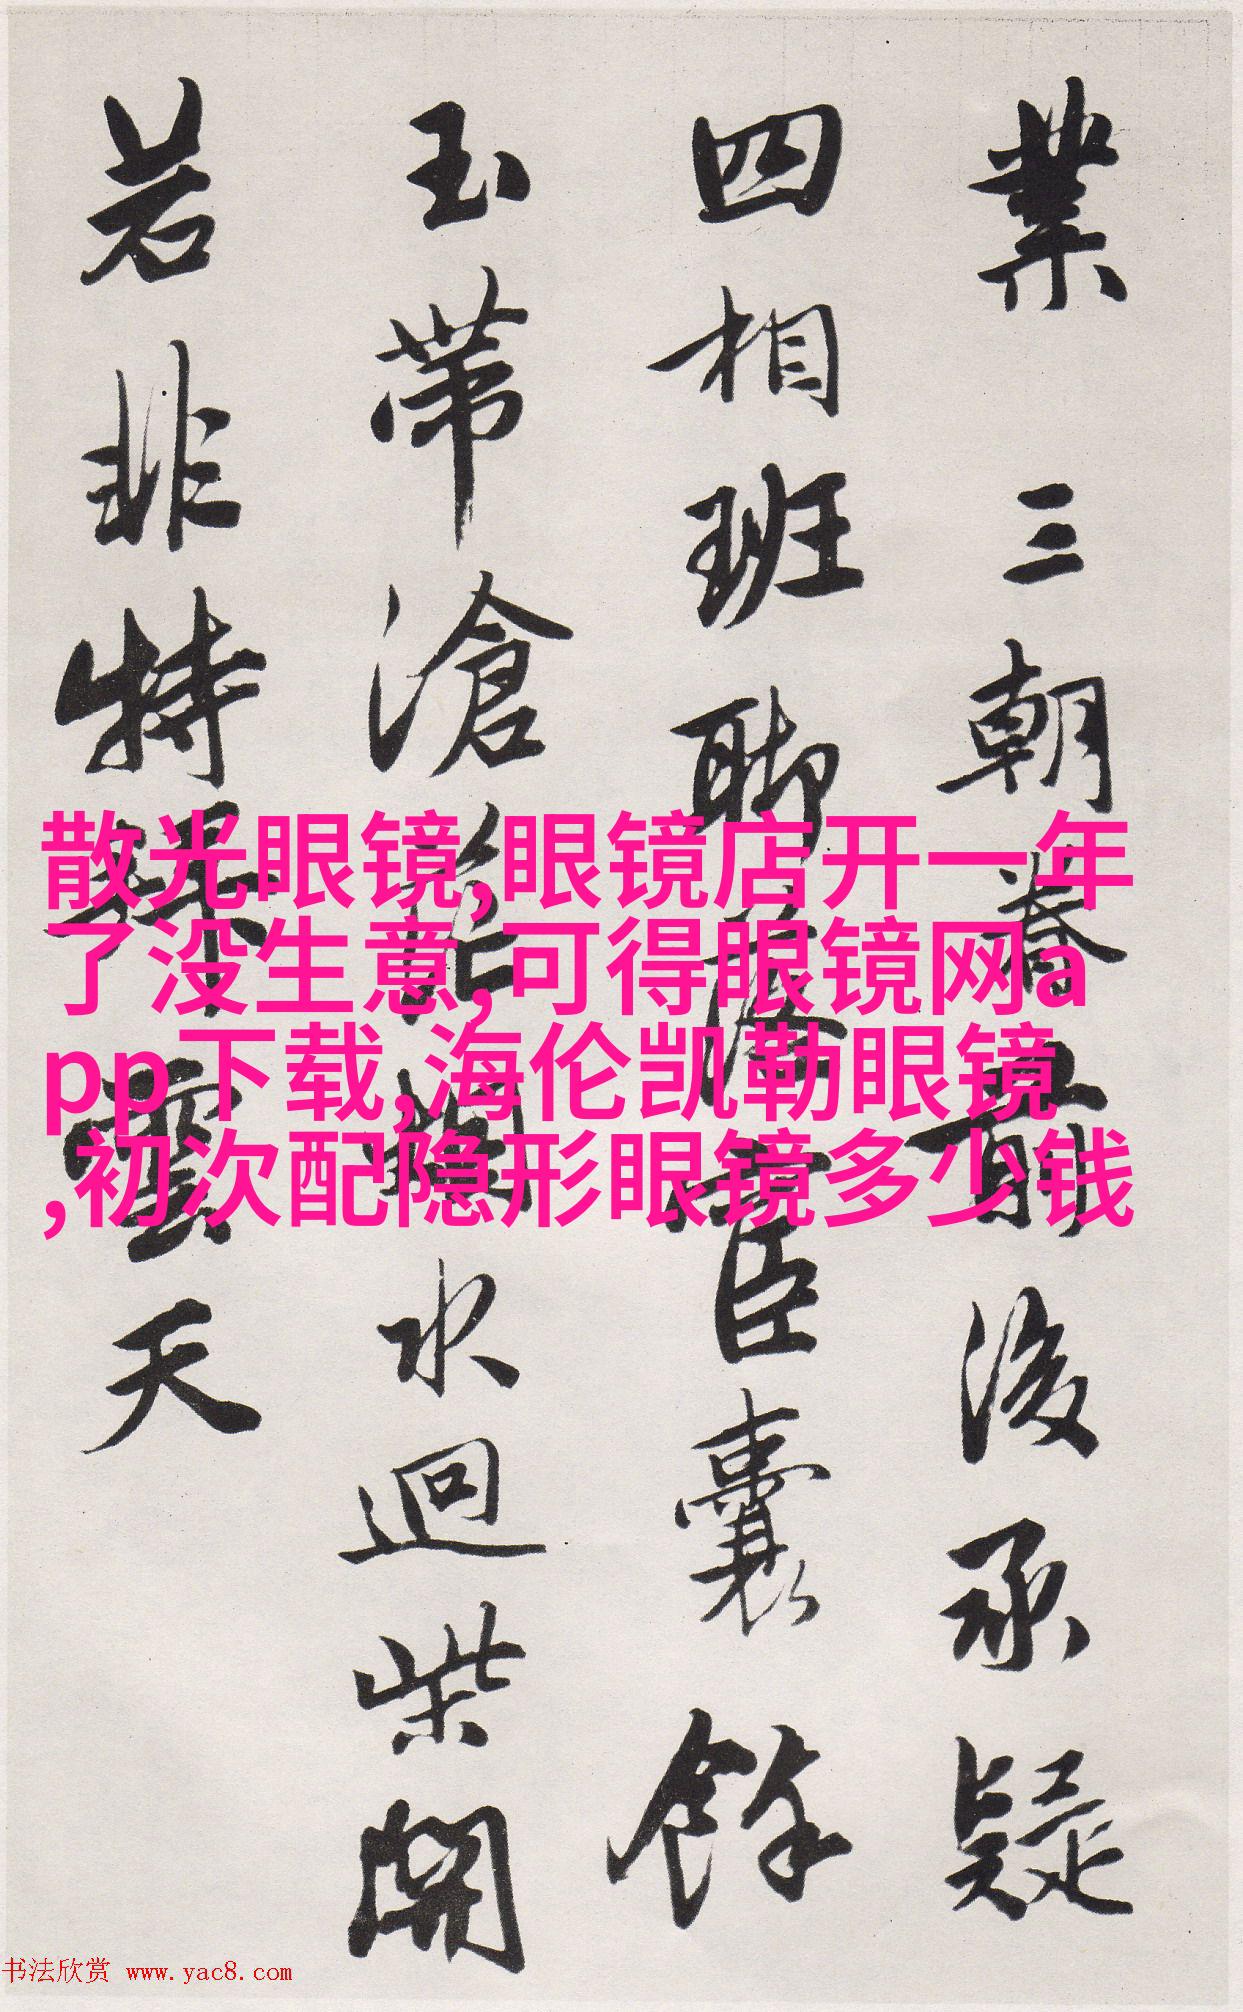 業三朝眷最後承疑
四相班聊落宦囊餘
玉帶滄水迴柴開
若非特雲天
散光眼镜,眼镜店开一年
了没生意,可得眼镜网a
pp下载,海伦凯勒眼镜
,初次配隐形眼镜多少钱
书法欣赏 www.yac8.com